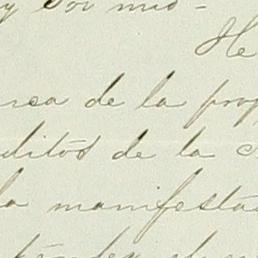 y por mid-
He
rca de la prop
ditos de la c
la manifesta